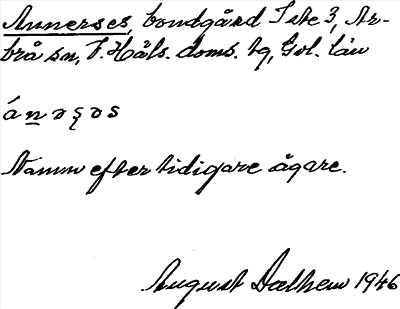 Annerses, bondgård I ste 3, Ar-
brå sn, V. Häls. doms. tg, Gvl. län
á n ə ş ə s
Namn efter tidigare ägare.
August Dalhem 1946